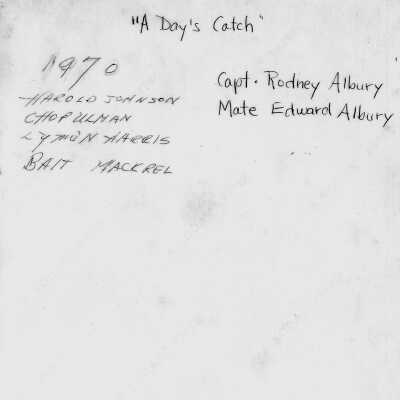 "A Day's Catch"
1970
HAROLD JOHNSON
CHOP ULMAN
LYMEN HARRIS
BAIT MACKREL
Capt. Rodney Albury
Mate Edward Albury